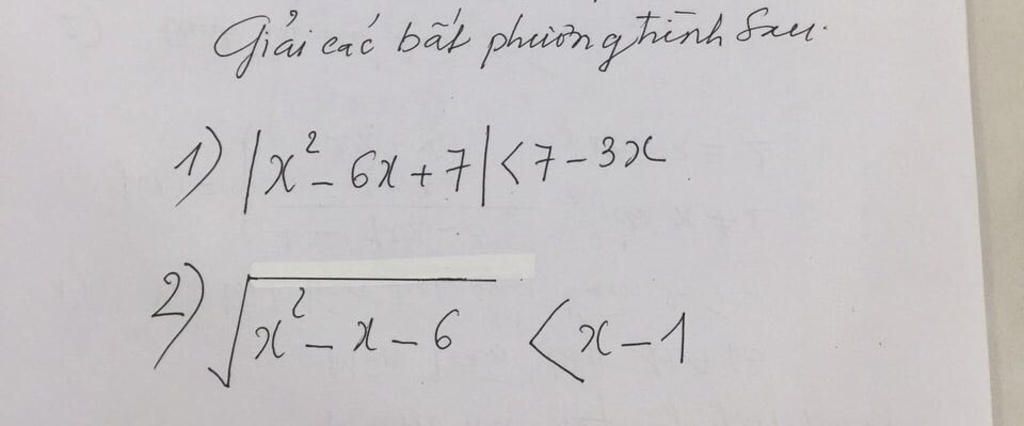 Giải các bất phương trình sau.
1) |x² - 6x + 7| < 7 - 3x
2) √(x² - x - 6) < x - 1